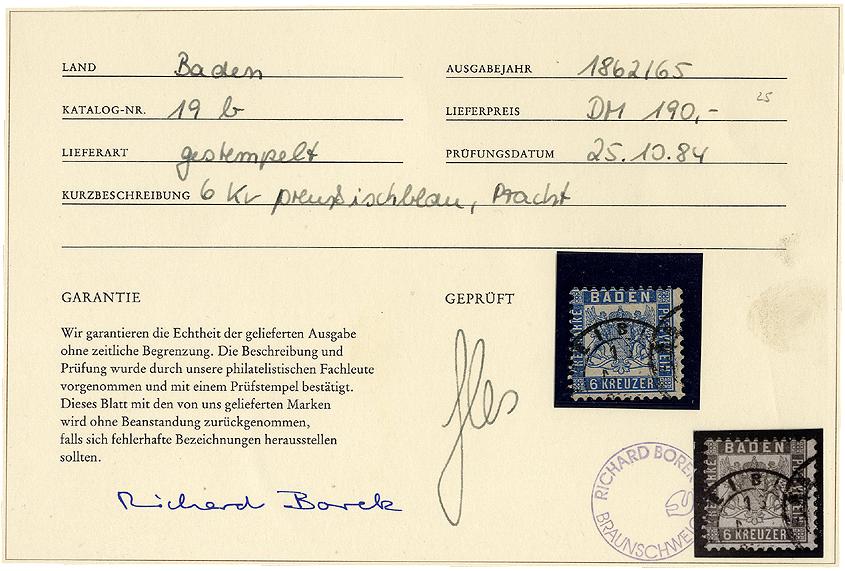 LAND Baden
AUSGABEJAHR 1862/65
KATALOG-NR. 19 b
LIEFERPREIS DM 190,- 25
LIEFERART gestempelt
PRÜFUNGSDATUM 25.10.84
KURZBESCHREIBUNG 6 Kr preußischblau, Pracht
GARANTIE
GEPRÜFT
Wir garantieren die Echtheit der gelieferten Ausgabe
ohne zeitliche Begrenzung. Die Beschreibung und
Prüfung wurde durch unsere philatelistischen Fachleute
vorgenommen und mit einem Prüfstempel bestätigt.
Dieses Blatt mit den von uns gelieferten Marken
wird ohne Beanstandung zurückgenommen,
falls sich fehlerhafte Bezeichnungen herausstellen
sollten.
Richard Borek
BADEN
FREIMARKE
POSTVEREIN
6 KREUZER
RICHARD BOREK
BRAUNSCHWEIG
BADEN
FREIMARKE
6 KREUZER